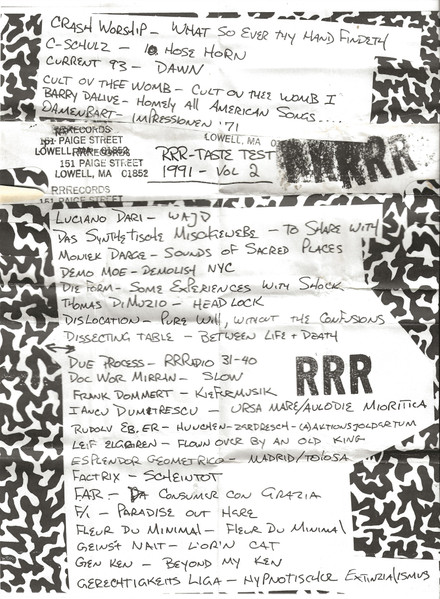 CRASH WORSHIP - WHAT SO EVER THY HAND FINDETH
C-SCHULZ - 10. HOSE HORN
CURRENT 93 - DAWN
CULT OV THEE WOMB - CULT OV THEE WOMB I
BARRY DALIVE - HOMELY ALL AMERICAN SONGS....
DAMENBART - IMPRESSIONEN '71
RRRECORDS
151 PAIGE STREET
LOWELL, MA 01852
RRRECORDS
151 PAIGE STREET
LOWELL, MA 01852
RRRECORDS
151 PAIGE STREET
LOWELL, MA
RRR-TASTE TEST
1991 - VOL 2
RRR
LUCIANO DARI - WAJD
DAS SYNTHETISCHE MISCHGEWEBE - TO SHARE WITH
MONIEK DARGE - SOUNDS OF SACRED PLACES
DEMO MOE - DEMOLISH NYC
DIE FORM - SOME EXPERIENCES WITH SHOCK
THOMAS DIMUZIO - HEADLOCK
DISLOCATION - PURE WILL, WITHOUT THE CONFUSIONS
DISSECTING TABLE - BETWEEN LIFE + DEATH
DUE PROCESS - RRRADIO 31-40
DOC WOR MIRRAN - SLOW
RRR
FRANK DOMMERT - KIEFERMUSIK
IANCU DUMITRESCU - URSA MARE/AULODIE MIORITICA
RUDOLF EB.ER - HUNCHEN-
LEIF ELGGREN - FLOWN OVER BY AN OLD KING
ESPLENDOR GEOMETRICO - MADRID/TOLOSA
FACTRIX - SCHEINTOT
FAR - DA CONSUMER CON GRAZIA
F/i - PARADISE OUT HERE
FLEUR DU MINIMAL - FLEUR DU MINIMAL
GEINS'T NAIT - L'OR'N CAT
GEN KEN - BEYOND MY KEN
GERECHTIGKEITS LIGA - HYPNOTISCHER EXTINZIALISMUS